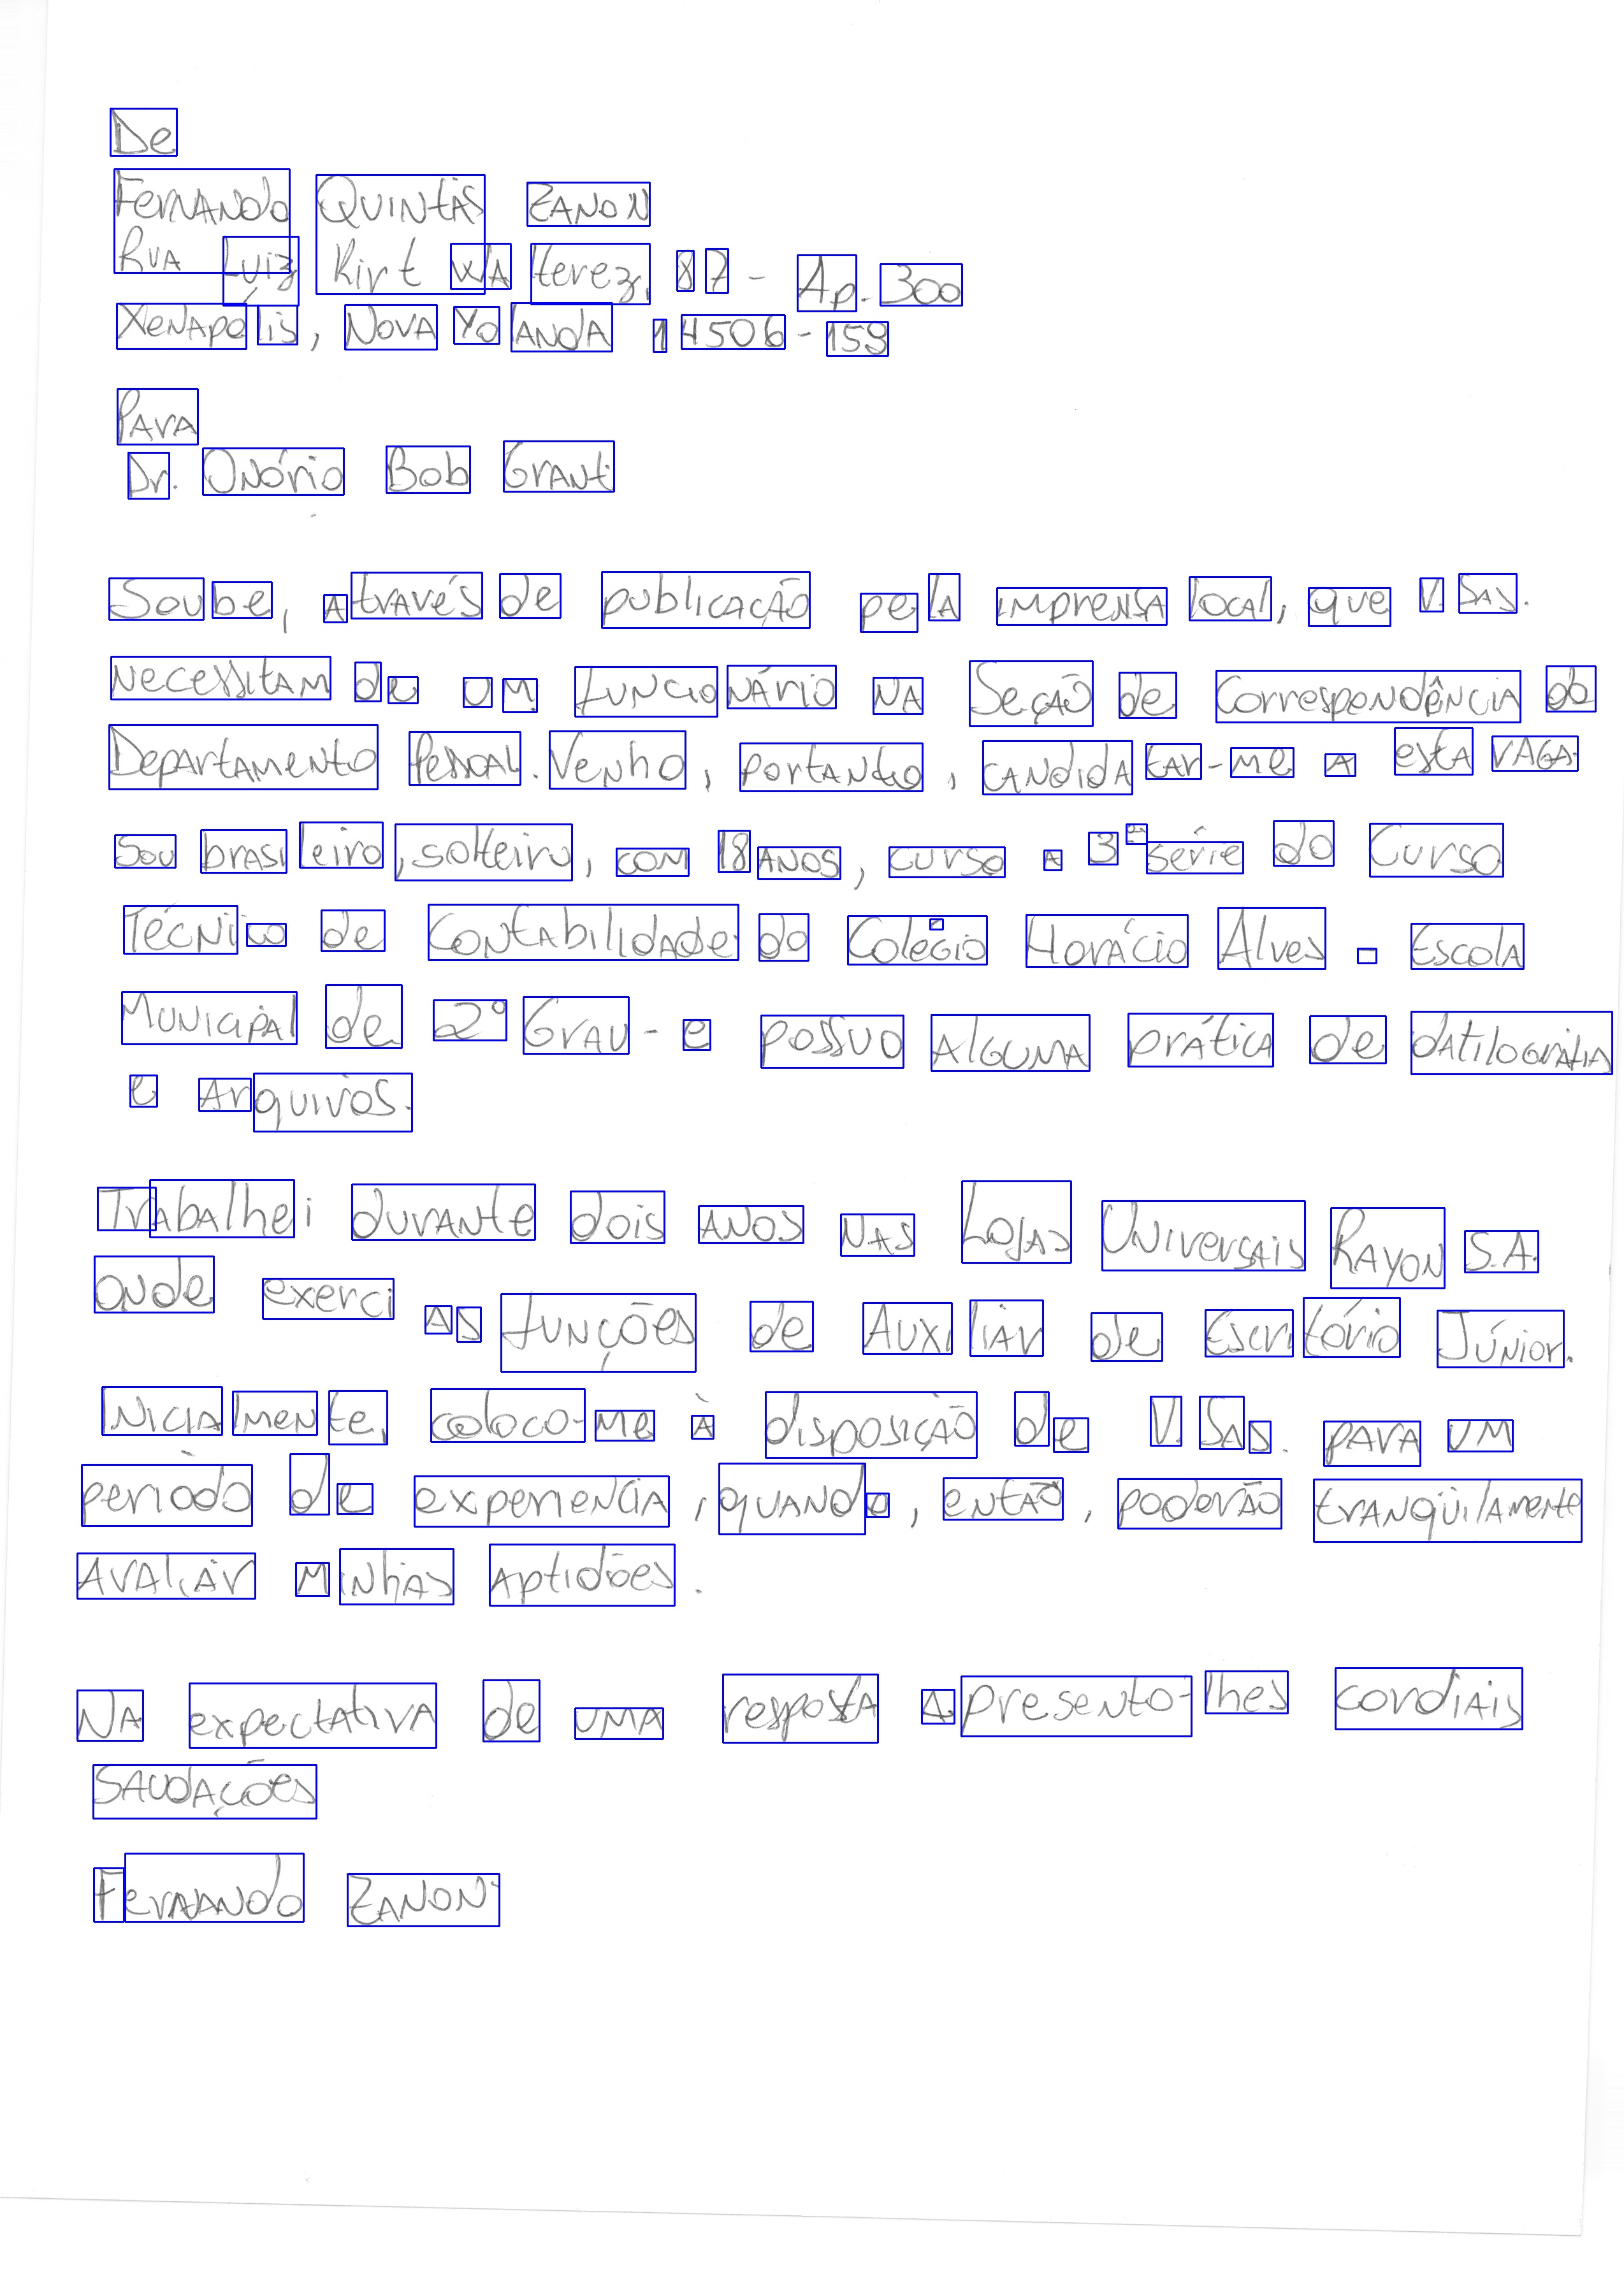 De
Fernando Quintas Zanon
Rua Luiz Kirt Walterez, 87 - Ap. 300
Xenapolis, Nova Yolanda 14506-159
Para
Dr. Onório Bob Grant
Soube, através de publicação pela imprensa local, que V. Sas.
necessitam de um funcionário na Seção de Correspondência do
Departamento Pessoal. Venho, portanto, candidatar-me a esta vaga.
Sou brasileiro, solteiro, com 18 anos, curso a 3ª série do Curso
Técnico de Contabilidade do Colégio Horácio Alves - Escola
Municipal de 2º Grau - e possuo alguma prática de datilografia
e arquivos.
Trabalhei durante dois anos nas Lojas Universais Rayon S.A.
onde exerci as funções de Auxiliar de Escritório Júnior.
Inicialmente, coloco-me à disposição de V. Sas. para um
período de experiencia, quando, então, poderão tranqüilamente
avaliar minhas aptidões.
Na expectativa de uma resposta apresento-lhes cordiais
saudações
Fernando Zanon